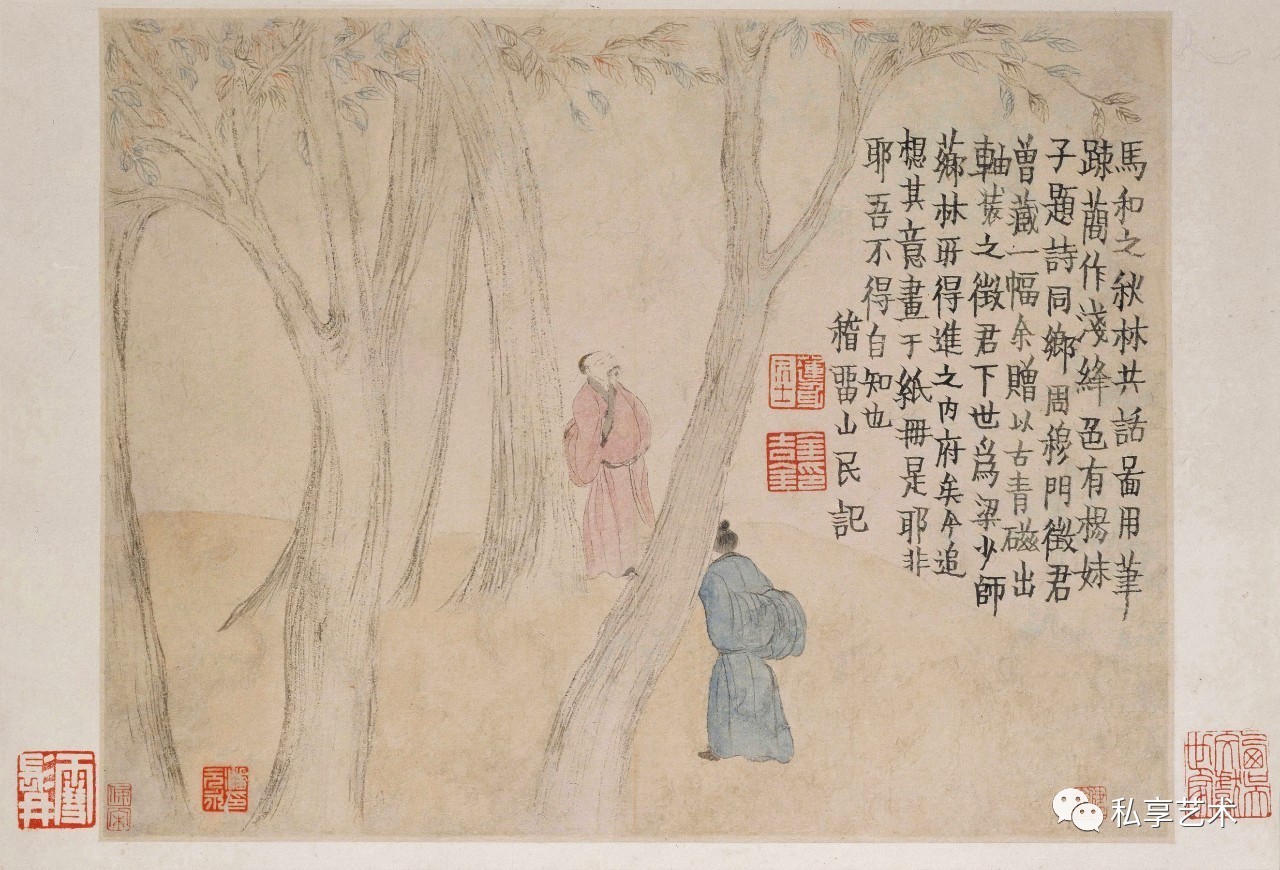 馬和之秋林共話啚用筆
踈蕳作淺絳色有楊妹
子題詩同鄉周穆門徵君
曾藏一幅余贈以古青磁出
軸裝之徵君下世爲梁少師
薌林所得進之内府矣今追
想其意畫于紙冊是耶非
耶吾不得自知也
稽畱山民記
私享艺术